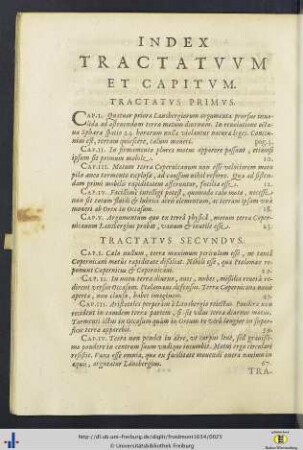 INDEX
TRACTATVVM
ET CAPITVM.
TRACTATVS PRIMVS.
CAP. I. Quatuor priora Lansbergiorum argumenta prorsus inua-
lida ad astruendum terra motum diurnum. In reuolutione octa-
ua sphæra spatio 24 horarum nulla violentur natura leges. Conti-
nuò est, terram quiescere, cælum moueri. pag. 5.
CAP. II. In firmamento plures motus apparere possunt, etiamsi
ipsum sit primum mobile. 10.
CAP. III. Motum terra Copernicanum non esse velociorem mo-
pila ænea tormento explosa, ad causam nihil refert. Quæ ad
dam primi mobilis rapiditatem afferuntur, futilia esse. 12.
CAP. IV. Facillimè intelligi potest, quomodo calo moto, necesse
non sit totum fluidi & lubrici aëris elementum, ac terram ipsam vnà
moueri ab Ortu in Occasum. 18.
CAP. V. Argumentum quo ex terra physicâ, motum terra Coper-
nicanum Lansbergius probat, vanum & inutile esse.
TRACTATVS SECVNDVS.
CAP. I. Calo nullum, terra maximum periculum est, ne tantâ
Copernicani motûs rapiditate dissiliat. Nihil est, quo Ptolemæo re-
ponent Copernicus &
CAP. II. In motu terra diurno, aues, nubes, missilia necessò va-
derent versus Occasum. Ptolemæus defensus. Terra Copernicana nauis
aperta, non clausa, habet imaginem. 45.
CAP. III. Aristoteles perperàm à Lansbergio reiectus. Pondera non
recident in eandem terra partem, si sit vllus terra diurnus motus.
Tormenti ictus in Occasum quàm in Ortum
terra apparebit.
CAP. IV. Terra non pendet in aëre, vt corpus leue, sed grauissi-
mo pondere in centrum suum vndique incumbit. Motui ergo circulari
resistit. Vana esse omnia, quæ ex facilitate mouendi onera nauium in
aquis, arguatur Lansbergius. 67.
TRA-
http://dl.ub.uni-freiburg.de/diglit/froidmont1634/0025
© Universitätsbibliothek Freiburg